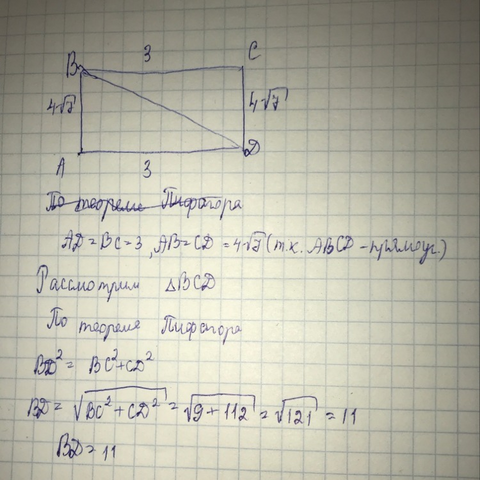 3
B
C
4√7
4√7
A
D
3
По теореме Пифагора
AD=BC=3, AB=CD=4√7 (т.к. ABCD-прямоуг.)
Рассмотрим △BCD
По теореме Пифагора
BD²= BC²+CD²
BD= √BC²+CD² = √9+112 = √121 = 11
BD=11